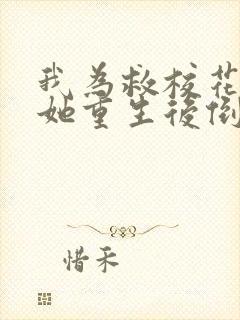 我为救校花
她重生后倒
惜禾